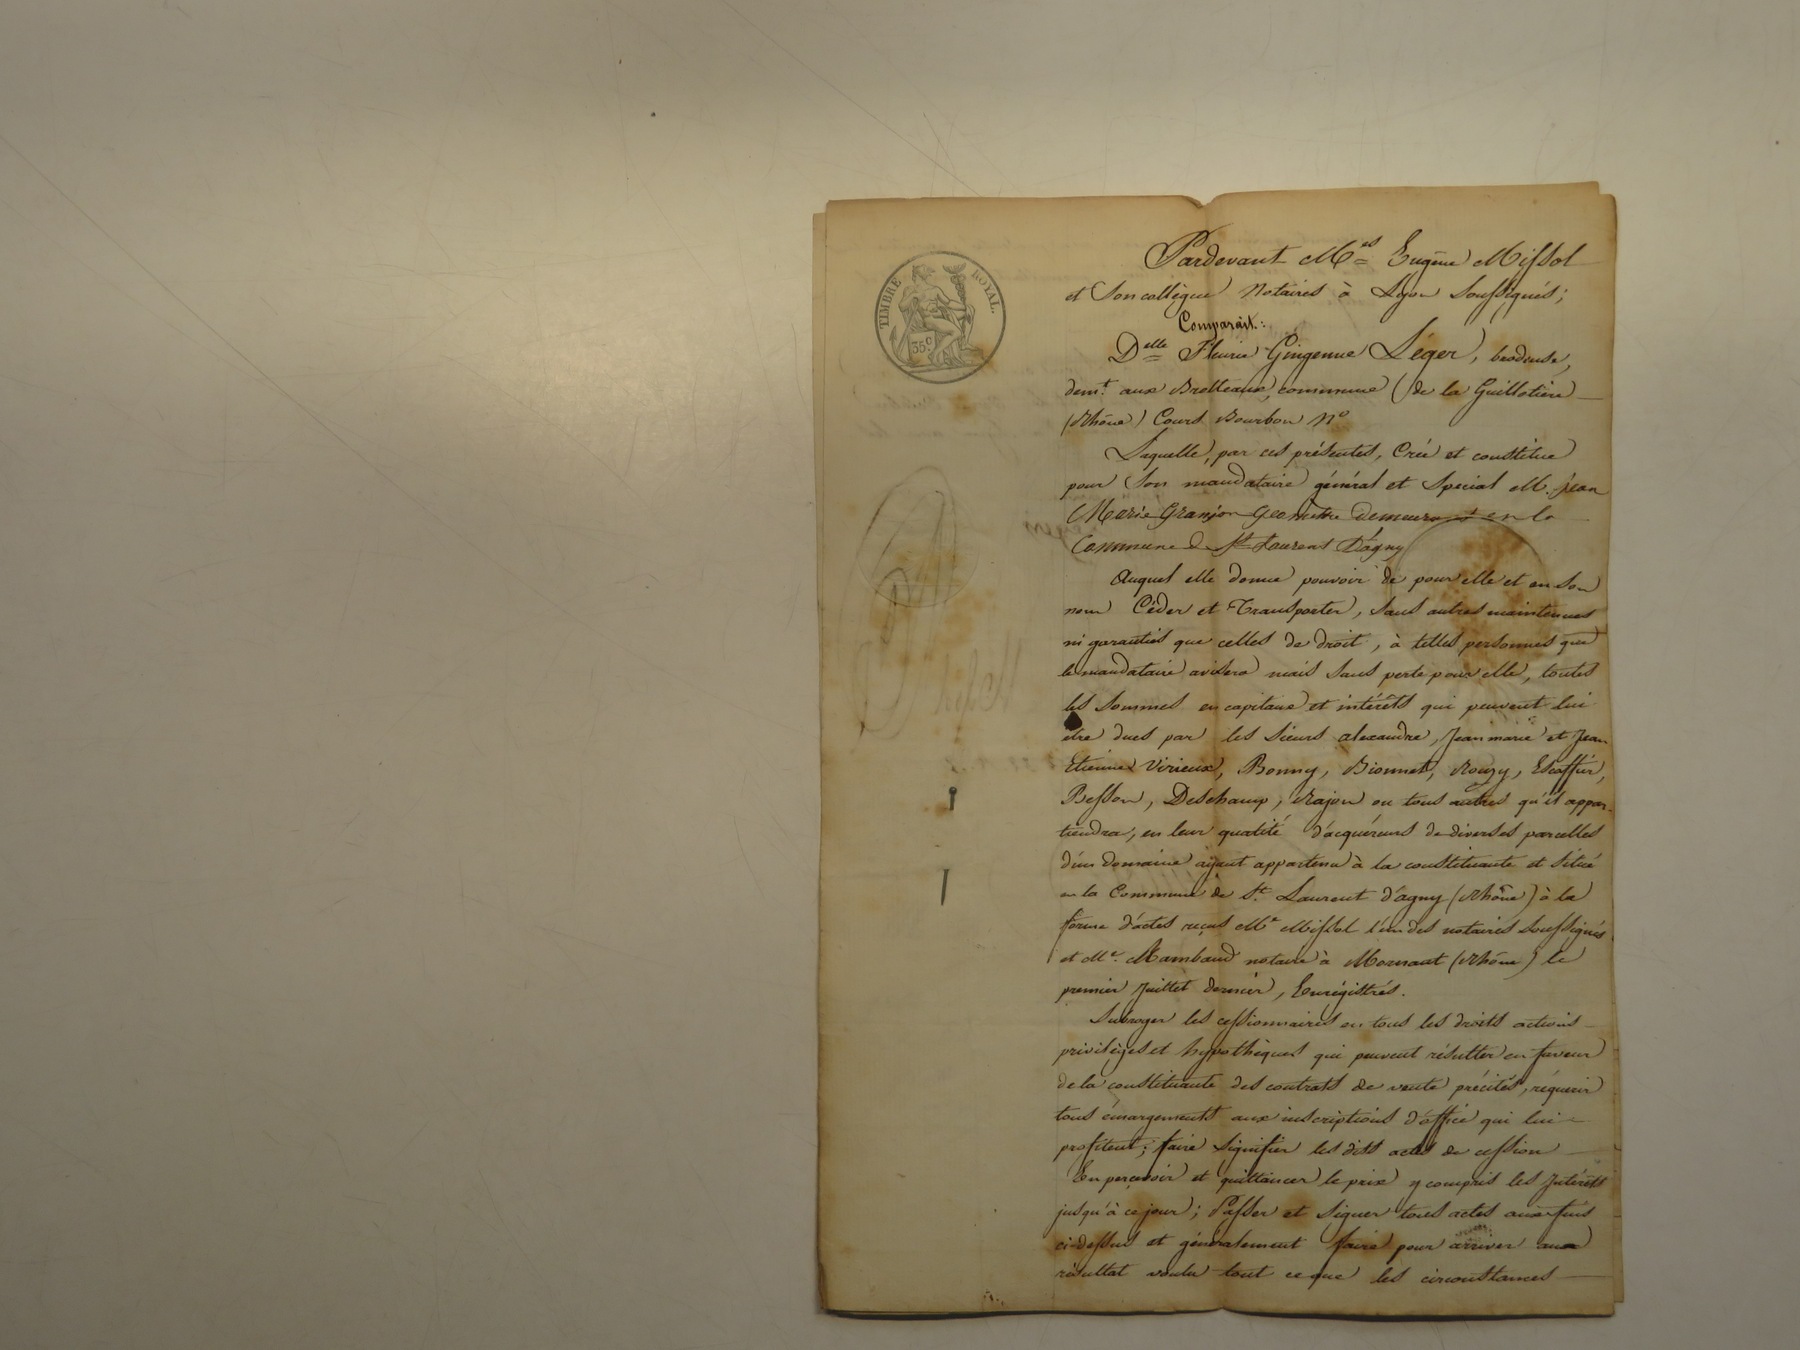 TIMBRE ROYAL.
35c.
Pardevant Mes Eugène Missol
et Son collègue Notaires à Lyon Soussignés;
Comparait:
Delle Fleurie Gingenne Léger, brodeuse,
demt. aux Brotteaux, commune de la Guillotière
(Rhône) Cours Bourbon No
Laquelle, par ces présentes, Crée et constitue
pour Son mandataire général et Spécial M. jean
Marie Granjon Géomètre demeurant en la
Commune de St Laurent D'agny
Auquel elle donne pouvoir de pour elle et en Son
nom Céder et Transporter, Sans autres maintenues
ni garanties que celles de droit, à telles personnes que
le mandataire avisera mais Sans perte pour elle, toutes
les Sommes en capitaux et intérêts qui peuvent lui
être dues par les Sieurs alexandre, Jean marie et Jean
Etienne Virieux, Bonny, Bionnet, Rouzy, Escoffier,
Besson, Deschamp, Rajon ou tous autres qu'il appar-
tiendra, en leur qualité d'acquéreurs de diverses parcelles
d'un domaine ayant appartenu à la constituante et Situé
en la Commune de St. Laurent d'agny (Rhône) à la
forme d'actes reçus Me Missol l'un des notaires Soussignés
et Me. Rambaud notaire à Mornant (Rhône) le
premier Juillet dernier, Enrégistrés.
Subroger les cessionnaires en tous les droits actions
privilèges et hypothèques qui peuvent résulter en faveur
de la constituante des contrats de vente précités, réquerir
tous émargements aux inscriptions d'office qui lui
profitent; faire Signifier les dits actes de cession
En percevoir et quittancer le prix y compris les Intérêts
jusqu'à ce jour; Passer et Signer tous actes aux fins
ci-dessus et généralement faire pour arriver au
résultat voulu tout ce que les circonstances